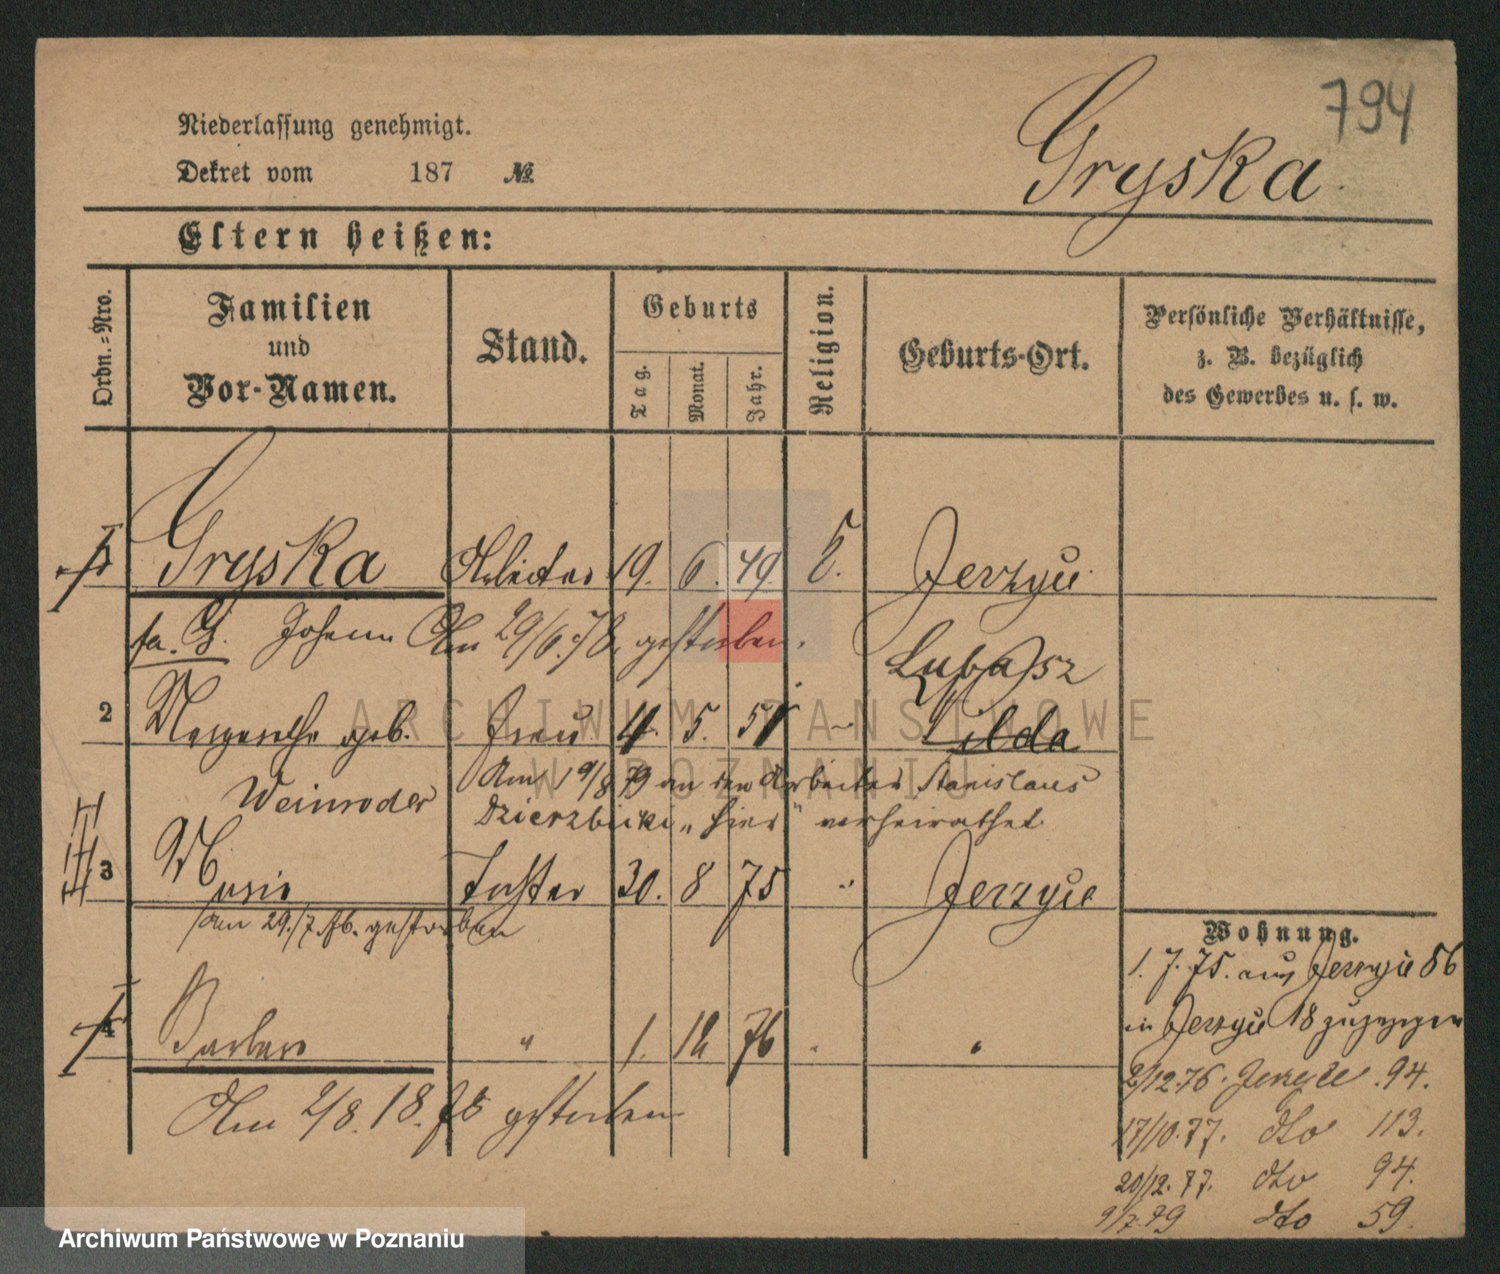 794
Niederlassung genehmigt.
Gryska
Dekret vom 187 №
Eltern heißen:
Ordn.=Nro.
Familien
und
Vor-Namen.
Stand.
Geburts
Tag.
Monat.
Jahr.
Religion.
Geburts-Ort.
Persönliche Verhältnisse,
z. B. bezüglich
des Gewerbes u. s. w.
Gryska Arbeiter 19. 6. 49. Jerzyce
Johann Am 29/6.78 gestorben.
Lubasz
2 Margarethe geb. Frau 4. 5. 51 " Filda
Weinroder Am 19/8 79 an den Arbeiter Stanislaus
Dzierzbicki „hier" verheirathet
3 Maria Tochter 30. 8 75 " Jerzyce
Am 29./7.76. gestorben
Wohnung.
1. 7. 75. aus Jerzyce 56
in Jerzyce 18 zugezogen
4 Barbara " 1. 12 76 " "
2/12.76. Jerzyce 94.
Am 2/8. 18.78 gestorben
17/10.77. dto 113.
20/12.77. dto 94.
9/7.79 dto 59.
ARCHIWUM PAŃSTWOWE
W POZNANIU
Archiwum Państwowe w Poznaniu